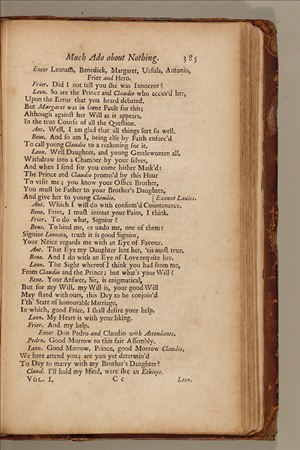 Much Ado about Nothing. 385
Enter Leonato, Benedick, Margaret, Ursula, Antonio,
Frier and Hero.
Frier. Did I not tell you she was Innocent?
Leon. So are the Prince and Claudio who accus'd her,
Upon the Error that you heard debated.
But Margaret was in some Fault for this;
Although against her Will as it appears,
In the true Course of all the Question.
Ant. Well, I am glad that all things sort so well.
Bene. And so am I, being else by Faith enforc'd
To call young Claudio to a reckoning for it.
Leon. Well Daughter, and young Gentlewomen all,
Withdraw into a Chamber by your selves,
And when I send for you come hither Mask'd:
The Prince and Claudio promis'd by this Hour
To visit me; you know your Office Brother,
You must be Father to your Brother's Daughter,
And give her to young Claudio. [Exeunt Ladies.
Ant. Which I will do with confirm'd Countenance.
Bene. Frier, I must intreat your Pains, I think.
Frier. To do what, Signior?
Bene. To bind me, or undo me, one of them:
Signior Leonato, truth it is good Signior,
Your Neice regards me with an Eye of Favour.
Ant. That Eye my Daughter lent her, 'tis most true.
Bene. And I do with an Eye of Love requite her.
Leon. The Sight whereof I think you had from me,
From Claudio and the Prince; but what's your Will?
Bene. Your Answer, Sir, is enigmatical,
But for my Will, my Will is, your good Will
May stand with ours, this Day to be conjoin'd
I'th' State of honourable Marriage,
In which, good Frier, I shall desire your help.
Leon. My Heart is with your liking.
Frier. And my help.
Enter Don Pedro and Claudio with Attendants.
Pedro. Good Morrow to this fair Assembly.
Leon. Good Morrow, Prince, good Morrow Claudio,
We here attend you; are you yet determin'd
To Day to marry with my Brother's Daughter?
Claud. I'll hold my Mind, were she an Ethiope.
VOL. I. C c Leon.